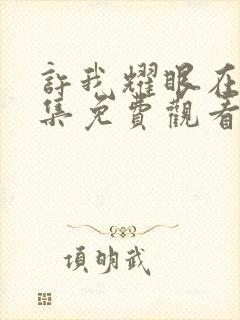 許我耀眼在
集免費觀看
項明武